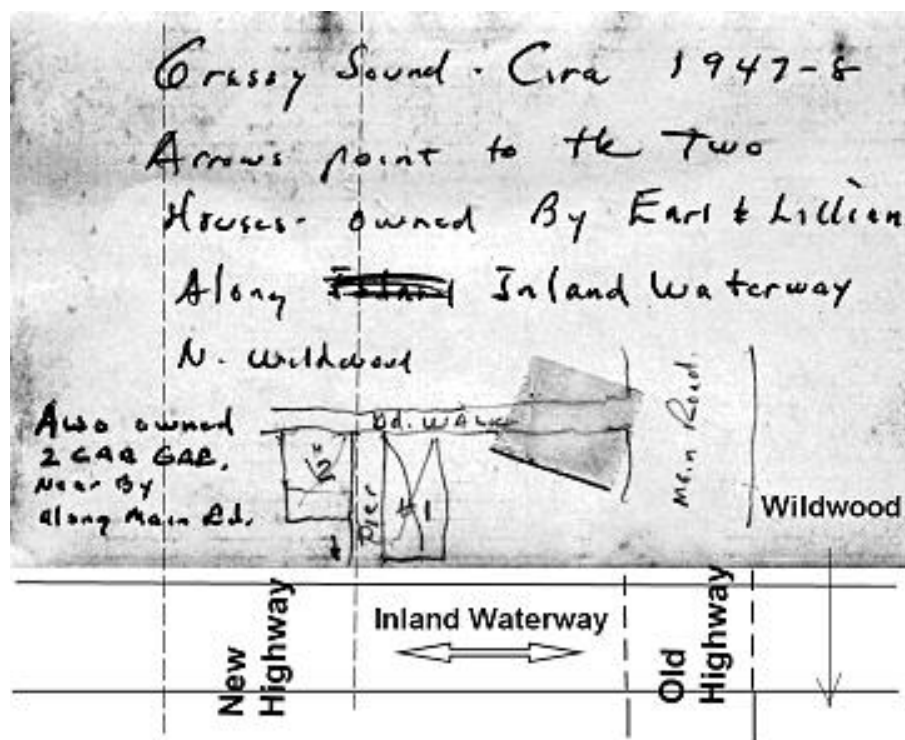 Grassy Sound - Cira 1947-8
Arrows point to the Two
Houses - owned By Earl & Lillian
Along Inland Waterway
N. Wildwood
Also owned
2 CAR GAR.
Near By
along Main Rd.
Bd. WALK
#2
Pier
#1
Main Road.
Wildwood
New Highway
Inland Waterway
Old Highway